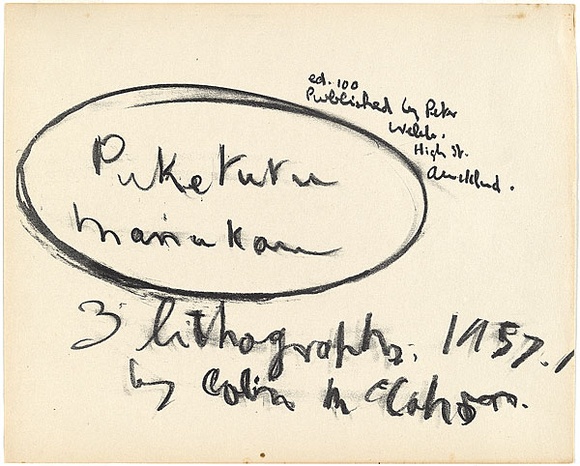 ed. 100
Published by Peter
Webb.
High St.
Auckland.
Puketutu
Manukau
3 lithographs. 1957.
by Colin McCahon.